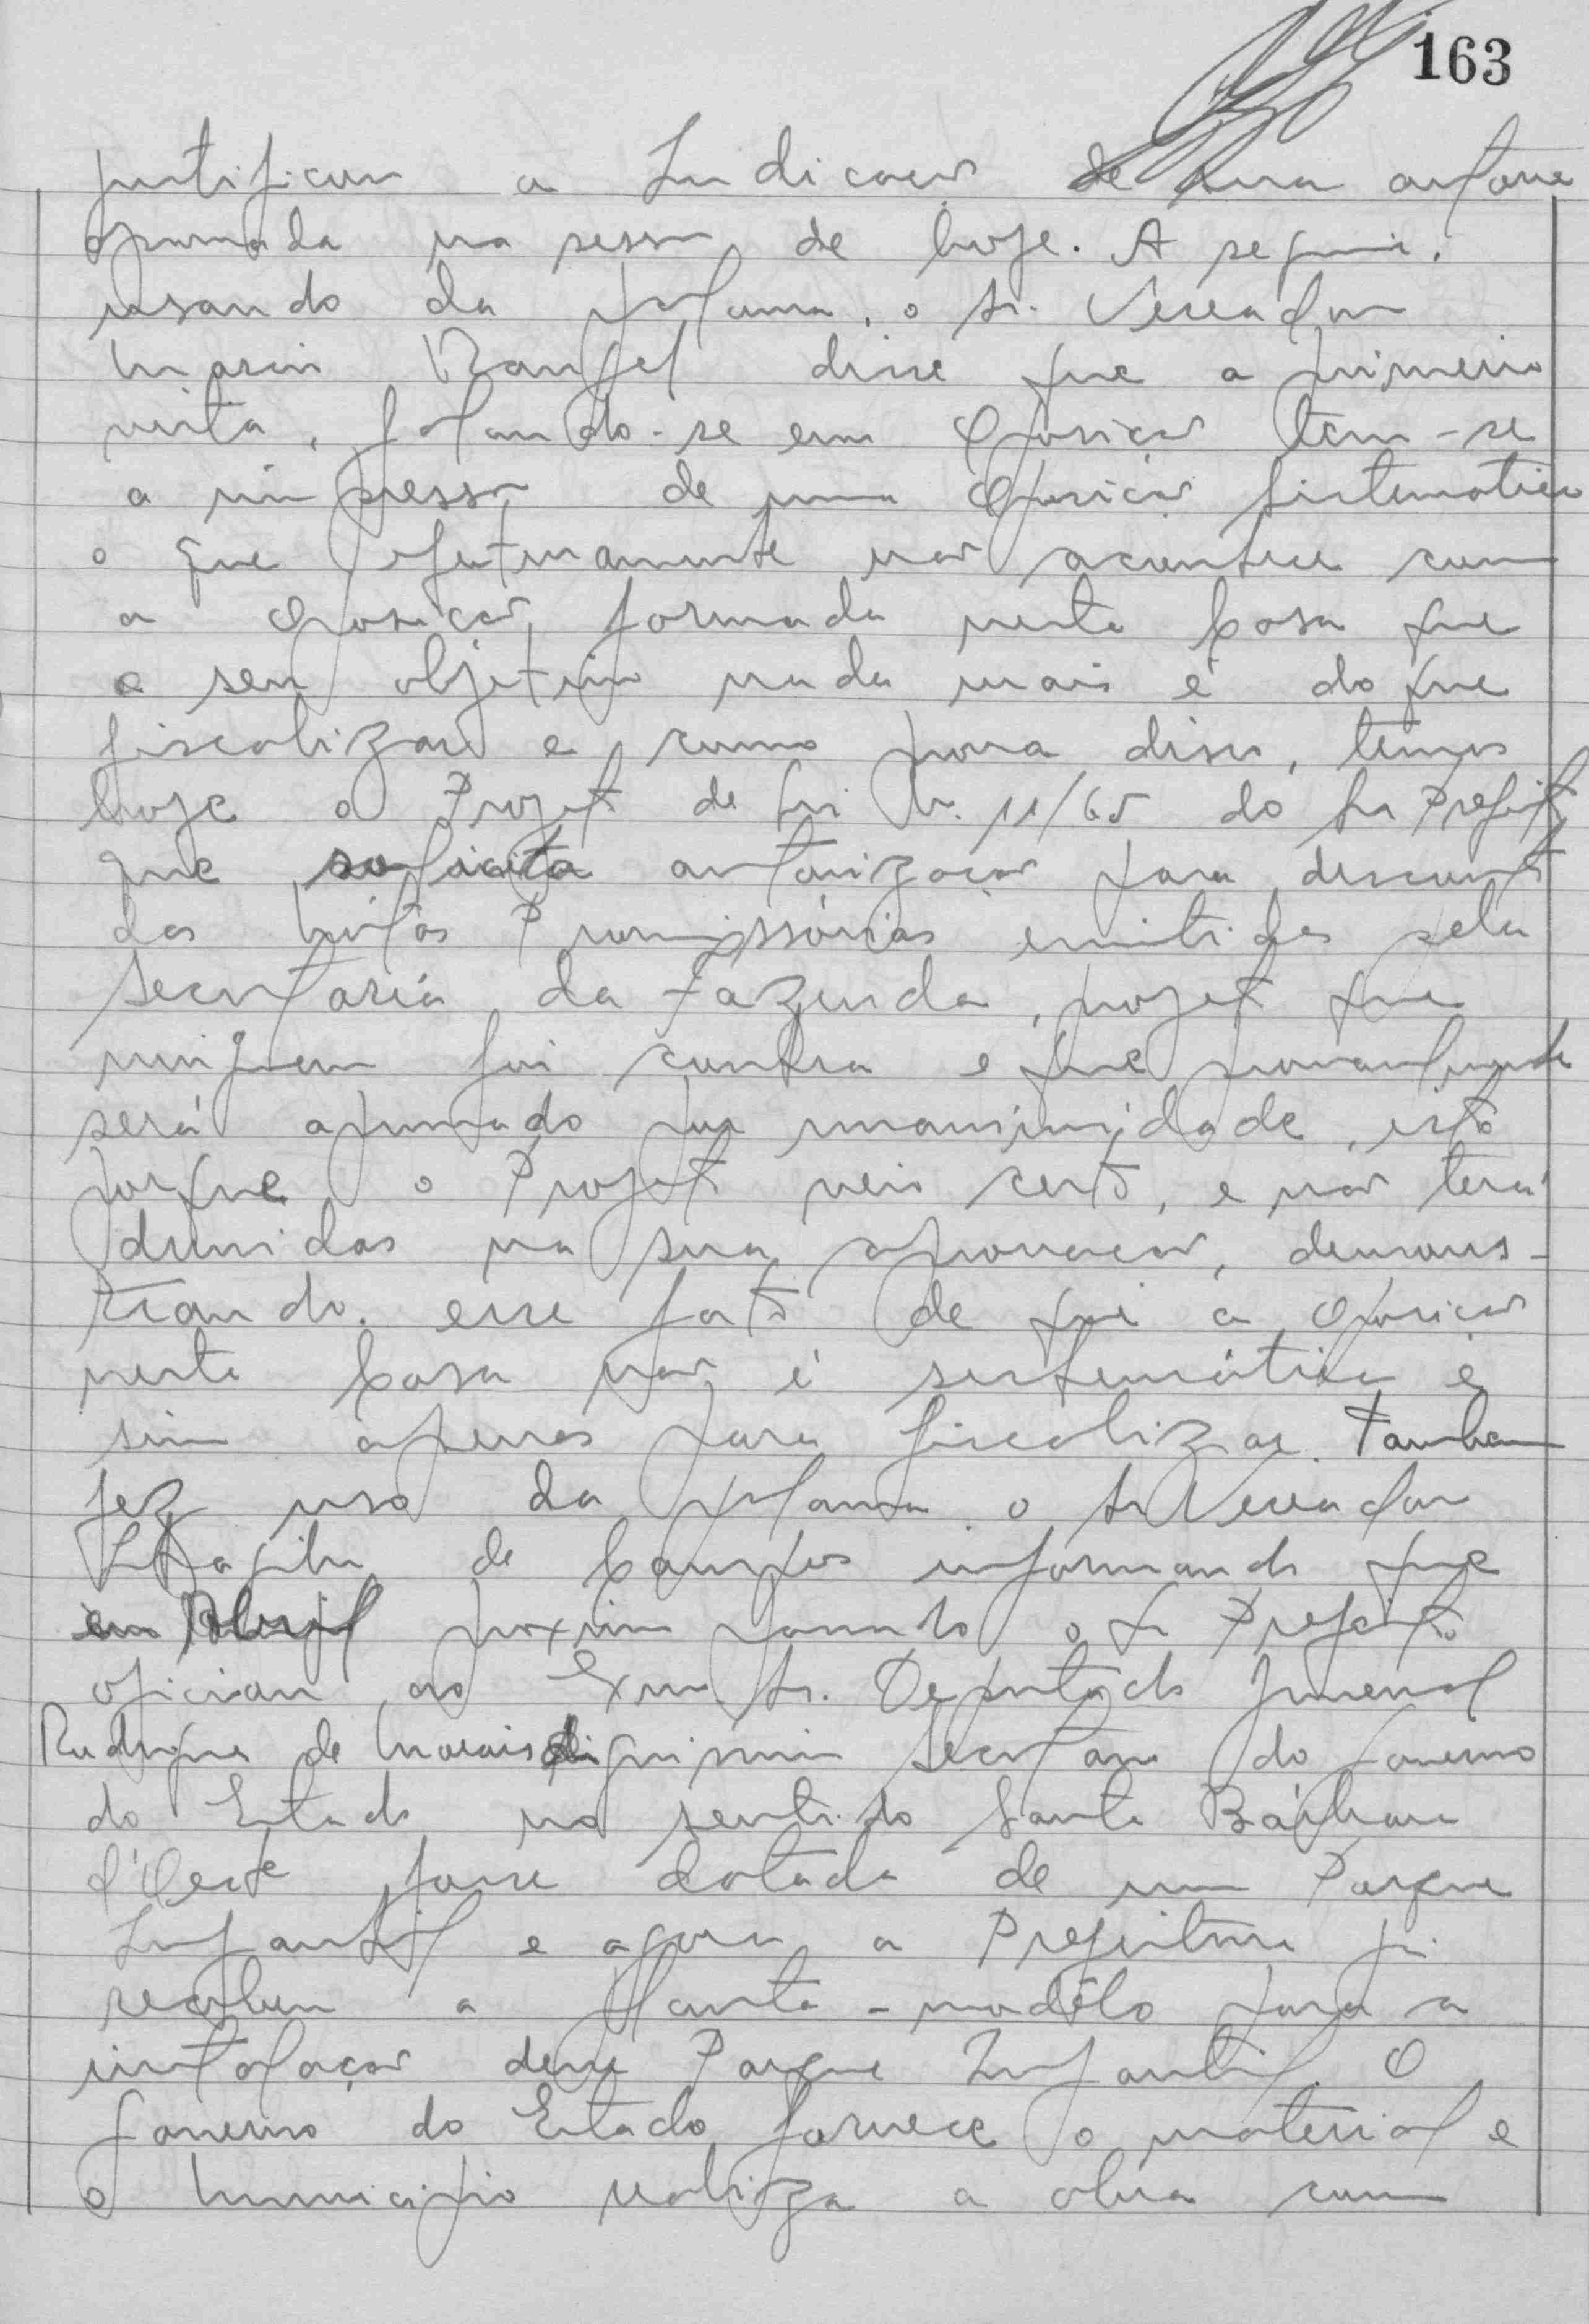 163
justificou a Indicação de sua autoria
aprovada na sessão de hoje. A seguir,
usando da palavra, o Sr. Vereador
Mario Rangel disse que a primeira
vista, falando-se em Oposição tem-se
a impressão de uma Oposição Sistematica
o que efetivamente não acontece com
a Oposição formada nesta Casa que
o seu objetivo nada mais é do que
fiscalizar e como prova disso, temos
hoje o Projeto de Lei N. 11/65 do Sr Prefeito
que solicita autorização para desconto
das Notas Promissórias emitidas pela
Secretaria da Fazenda, projeto que
ninguem foi contra e que provavelmente
será aprovado por unanimidade, isto
porque o Projeto veio certo, e não terá
duvidas na sua aprovação, demons-
trando esse fato de que a Oposição
nesta Casa não é sistemática e
sim apenas para fiscalizar. Tambem
fez uso da palavra o Sr Vereador
de Campos informando que
em Abril proximo passado o Sr Prefeito
oficiou ao Exmo. Sr. Deputado Juvenal
Rodrigues de Morais dignissimo Secretario do Governo
do Estado no sentido Santa Bárbara
d'Oeste fosse dotada de um Parque
Infantil e agora a Prefeitura já
recebeu a planta-modêlo para a
instalação desse Parque Infantil. O
Governo do Estado fornece o material e
o Municipio realiza a obra com